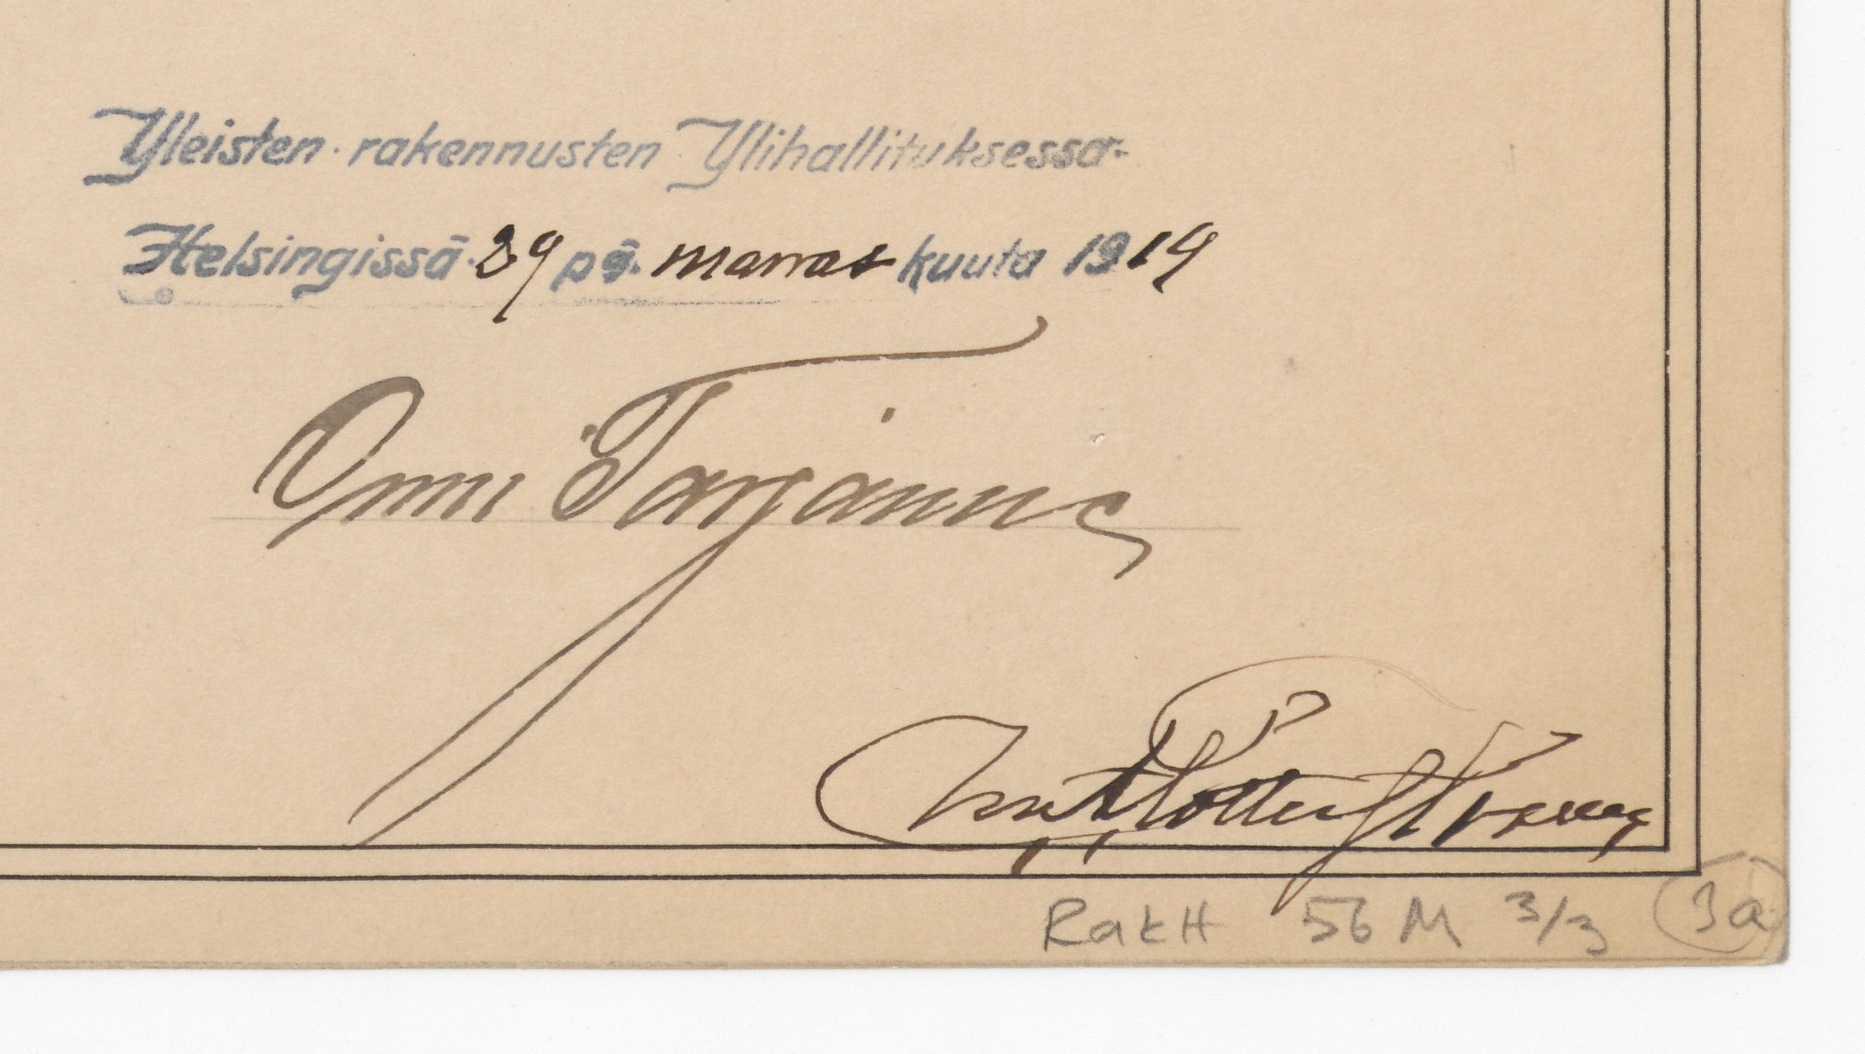 Yleisten rakennusten Ylihallituksessa.
Helsingissä 29 pä. marras kuuta 1919
Onni Tarjanne
RakH 56 M 3/3 3a